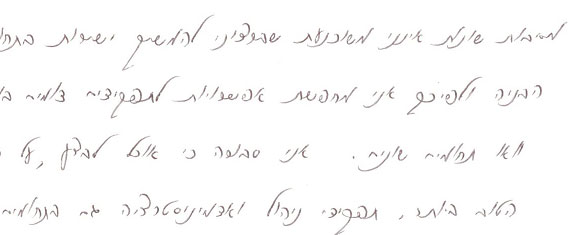 מסיבות שונות אינני משוכנעת שברצוני להמשיך ישירות בתחו
הבניה ולפיכך אני מחפשת אפשרויות לתפקידים דומים ב
ו/או תחומים שונים. אני סבורה כי אוכל לבצע, על
הטוב ביותר, תפקידי ניהול ואדמיניסטרציה גם בתחומים